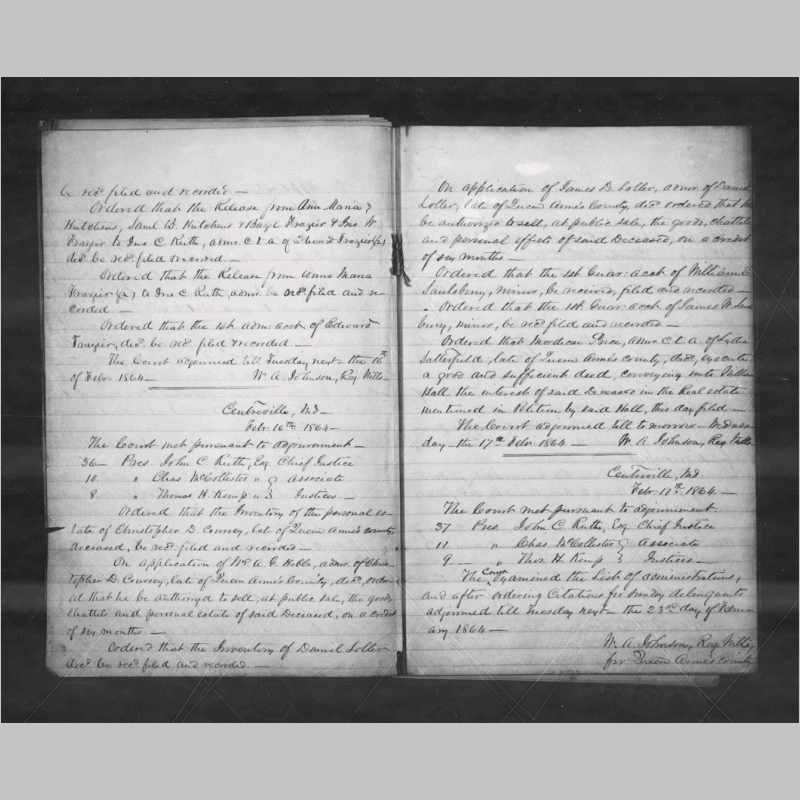 be recd. filed and recorded —
Ordered that the Release from Ann Maria
Hutchins, Saml B. Hutchins & Frazier & Jno W.
Frazier to Jno C. Ruth, admr. C.t.A. of Edward Frazier
decd. be recd. filed recorded —
Ordered that the Release from Anna Maria
Frazier to Jno C Ruth, admr. be recd filed and re-
corded —
Ordered that the 1st admr. acct. of Edward
Frazier, decd. be recd. filed & recorded —
The Court adjourned till Tuesday next the 16th
of Febr. 1864 — W. A. Johnson, Reg Wills
Centreville, Md —
Febr. 16th 1864 —
The Court met pursuant to adjournment —
36 — Pres John C Ruth, Esq Chief Justice
10 " Chas McCollister " } associate
8 " Thomas H. Kemp " } Justices —
Ordered that the Inventory of the personal es-
tate of Christopher D. Coursey, late of Queen Anne's county
deceased, be recd. filed and recorded —
On application of Wm A. G. admr. of Chris-
topher D. Coursey, late of Queen Anne's County, decd, order-
ed that he be authorized to sell, at public sale, the goods
chattels and personal estate of said Deceased, on a credit
of six months. —
Ordered that the Inventory of Daniel Loller
decd. be recd. filed and recorded —
On application of James D. Loller, admr. of Daniel
Loller, late of Queen Anne's County, decd. ordered that he
be authorized to sell, at public sale, the goods, chattels
and personal effects of said Deceased, on a credit
of six months —
Ordered that the 1st Guar: acct of William
Saulsbury, minor, be received, filed and recorded —
Ordered that the 1st Guar: acct. of James W. Sauls
bury, minor, be recd. filed and recorded —
Ordered that Mordica Price, admr. C.t.A. of Lydia
Satterfield, late of Queen Anne's county, decd, execute
a good and sufficient deed, conveying unto William
Hall the interest of said Deceased in the Real estate
mentioned in Petition by said Hall, this day filed —
The Court adjourned till to morrow — Wednes
day — the 17th Febr. 1864 — W. A. Johnson, Reg Wills
Centreville, Md
Feb. 17th. 1864 —
The Court met pursuant to adjournment
37 Pres John C. Ruth, Esq Chief Justice
11 " Chas. McCollister } Associate
9 — " Thos H. Kemp } Justices —
The Court examined the List of administrations,
and after ordering Citations for sunday delinquents
adjourned till Tuesday next — the 23rd day of Febru
ary 1864 —
W. A. Johnson, Reg Wills
for Queen Anne's County